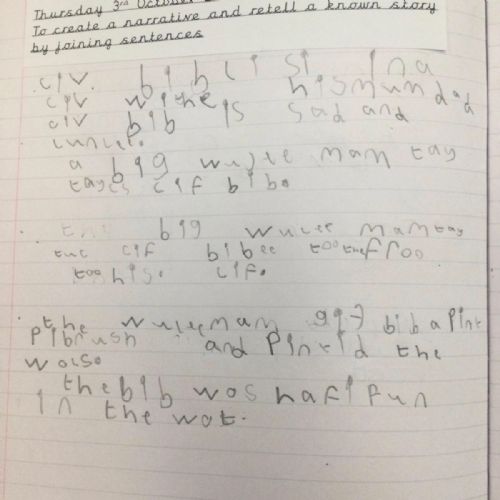 Thursday 3rd October
To create a narrative and retell a known story
by joining sentences
civ. bib cli si ina
civ withe his mum dad
civ bib is sad and
a big wujle man tay
tayes cif bib.
the big wulee man tay
tuc cif bibee too the froo
too his. cif.
the wuleeman gif bib a Pint
Pibrush and Pintid the
wolso
the bib wos hafifun
in the wot.